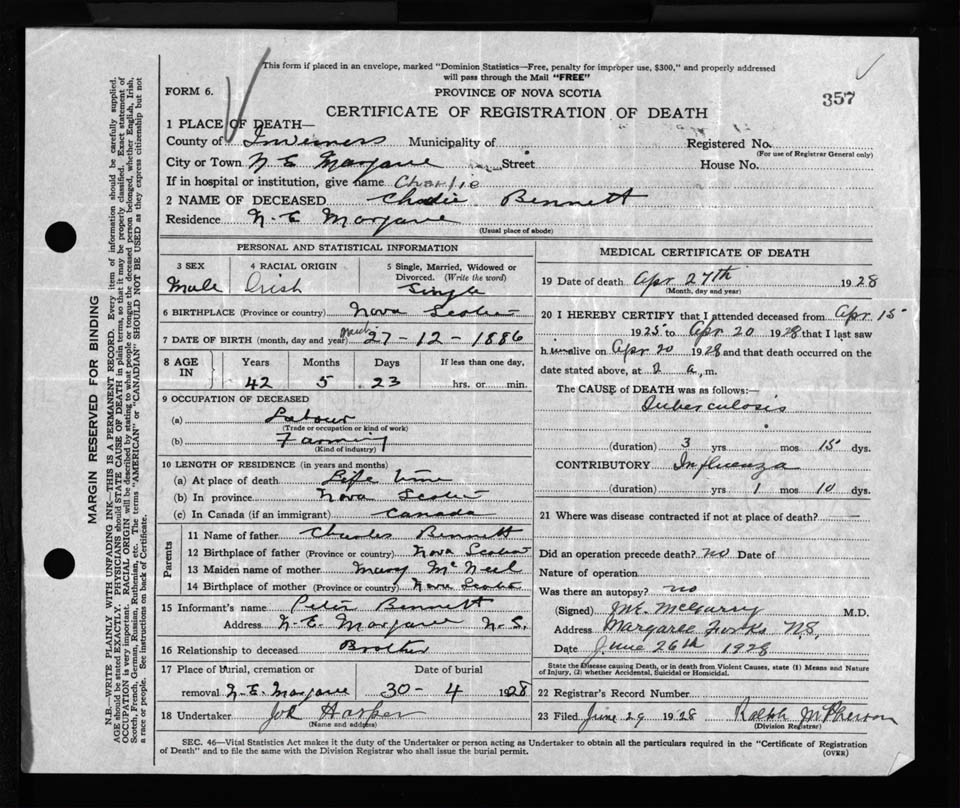 This form if placed in an envelope, marked "Dominion Statistics—Free, penalty for improper use, $300," and properly addressed
will pass through the Mail "FREE"
FORM 6.
PROVINCE OF NOVA SCOTIA
357
CERTIFICATE OF REGISTRATION OF DEATH
1 PLACE OF DEATH—
County of Inverness Municipality of Registered No.
(For use of Registrar General only)
City or Town N E Margaree Street House No.
If in hospital or institution, give name Charlie
2 NAME OF DECEASED Bennett
Residence N. E Margaree
(Usual place of abode)
PERSONAL AND STATISTICAL INFORMATION
3 SEX 4 RACIAL ORIGIN 5 Single, Married, Widowed or Divorced. (Write the word)
Male Irish Single
6 BIRTHPLACE (Province or country) Nova Scotia
7 DATE OF BIRTH (month, day and year) 27-12-1886
8 AGE IN Years Months Days If less than one day,
42 5 23 hrs. or min.
9 OCCUPATION OF DECEASED
(a) Labour
(Trade or occupation or kind of work)
(b) Farming
(Kind of industry)
10 LENGTH OF RESIDENCE (in years and months)
(a) At place of death Life time
(b) In province Nova Scotia
(c) In Canada (if an immigrant) Canada
Parents
11 Name of father Charles Bennett
12 Birthplace of father (Province or country) Nova Scotia
13 Maiden name of mother Mary McNeil
14 Birthplace of mother (Province or country) Nova Scotia
15 Informant's name Peter Bennett
Address N. E. Margaree N. S.
16 Relationship to deceased Brother
17 Place of burial, cremation or Date of burial
removal N. E. Margaree 30-4 1928
18 Undertaker Harper
(Name and address)
MEDICAL CERTIFICATE OF DEATH
19 Date of death Apr 27th 1928
(Month, day and year)
20 I HEREBY CERTIFY that I attended deceased from Apr 15
1925 to Apr 20 1928 that I last saw
him alive on Apr 20 1928 and that death occurred on the
date stated above, at 2 a, m.
The CAUSE of DEATH was as follows:—
Tuberculosis
(duration) 3 yrs mos 15 dys.
CONTRIBUTORY Influenza
(duration) yrs 1 mos 10 dys.
21 Where was disease contracted if not at place of death? —
Did an operation precede death? no Date of
Nature of operation
Was there an autopsy? no
(Signed) McGarry M.D.
Address Margaree Forks N.S.
Date June 26th 1928
State the Disease causing Death, or in death from Violent Causes, state (1) Means and Nature
of Injury, (2) whether Accidental, Suicidal or Homicidal.
22 Registrar's Record Number
23 Filed June 29 1928 Ralph McPherson
(Division Registrar)
SEC. 46—Vital Statistics Act makes it the duty of the Undertaker or person acting as Undertaker to obtain all the particulars required in the "Certificate of Registration
of Death" and to file the same with the Division Registrar who shall issue the burial permit.
(OVER)
MARGIN RESERVED FOR BINDING
N.B.—WRITE PLAINLY WITH UNFADING INK—THIS IS A PERMANENT RECORD. Every item of information should be carefully supplied.
AGE should be stated EXACTLY. PHYSICIANS should STATE CAUSE OF DEATH in plain terms, so that it may be properly classified. Exact statement of
OCCUPATION is very important. RACIAL ORIGIN will be described by stating to what people or tongue the deceased person belonged, whether English, Irish,
Scotch, French, German, Russian, Ruthenian, etc. The terms "AMERICAN" or "CANADIAN" SHOULD NOT BE USED as they express citizenship but not
a race or people. See instructions on back of Certificate.